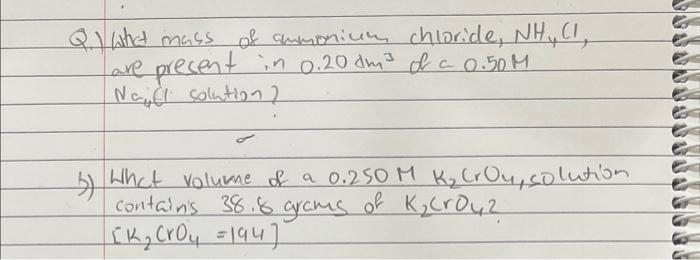 Q.) What mass of ammonium chloride, NH4Cl,
are present in 0.20 dm³ of a 0.50M
Na4Cl solution?
b) What volume of a 0.250 M K2CrO4, solution
contains 38.8 grams of K2CrO4?
[K2CrO4 = 194]